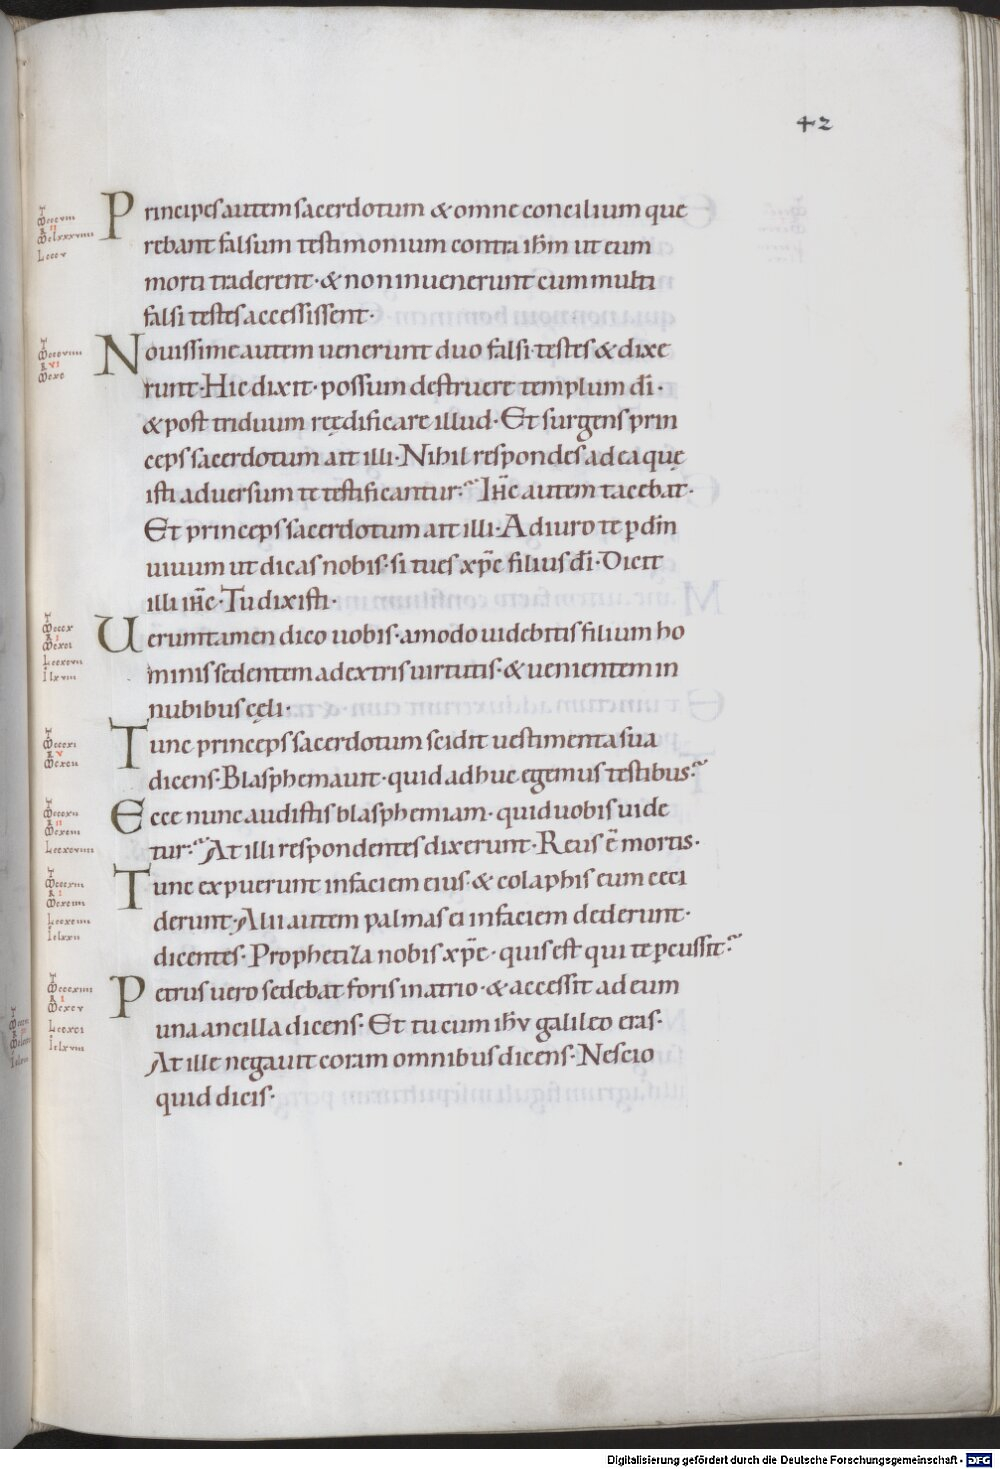 42
Principes autem sacerdotum & omne concilium quę
rebant falsum testimonium contra ihm̄ ut eum
morti traderent· & non inuenerunt cum multi
falsi testes accessissent·
Nouissime autem uenerunt duo falsi testes & dixe
runt· Hic dixit· possum destruere templum dī·
& post triduum reędificare illud· Et surgens prin
ceps sacerdotum ait illi· Nihil respondes ad ea quę
isti aduersum te testificantur? Ihc̄ autem tacebat·
Et princeps sacerdotum ait illi· Adiuro te ꝑ dm̄
uiuum ut dicas nobis· si tu es xp̄c filius dī· Dicit
illi ihc̄· Tu dixisti·
Ueruntamen dico uobis· amodo uidebitis filium ho
minis sedentem ad extris uirtutis· & uenientem in
nubibus cęli·
Tunc princeps sacerdotum scidit uestimenta sua
dicens· Blasphemauit· quid adhuc egemus testibus?
Ecce nunc audistis blasphemiam· quid uobis uide
tur? At illi respondentes dixerunt· Reus ē mortis·
Tunc expuerunt in faciem eius· & colaphis eum ceci
derunt· Alii autem palmas ei in faciem dederunt·
dicentes· Prophetiza nobis xp̄c· quis est qui te ꝑcussit?
Petrus uero sedebat foris in atrio· & accessit ad eum
una ancilla dicens· Et tu cum ihv̄ galileo eras·
At ille negauit coram omnibus dicens· Nescio
quid dicis·
Digitalisierung gefördert durch die Deutsche Forschungsgemeinschaft - DFG